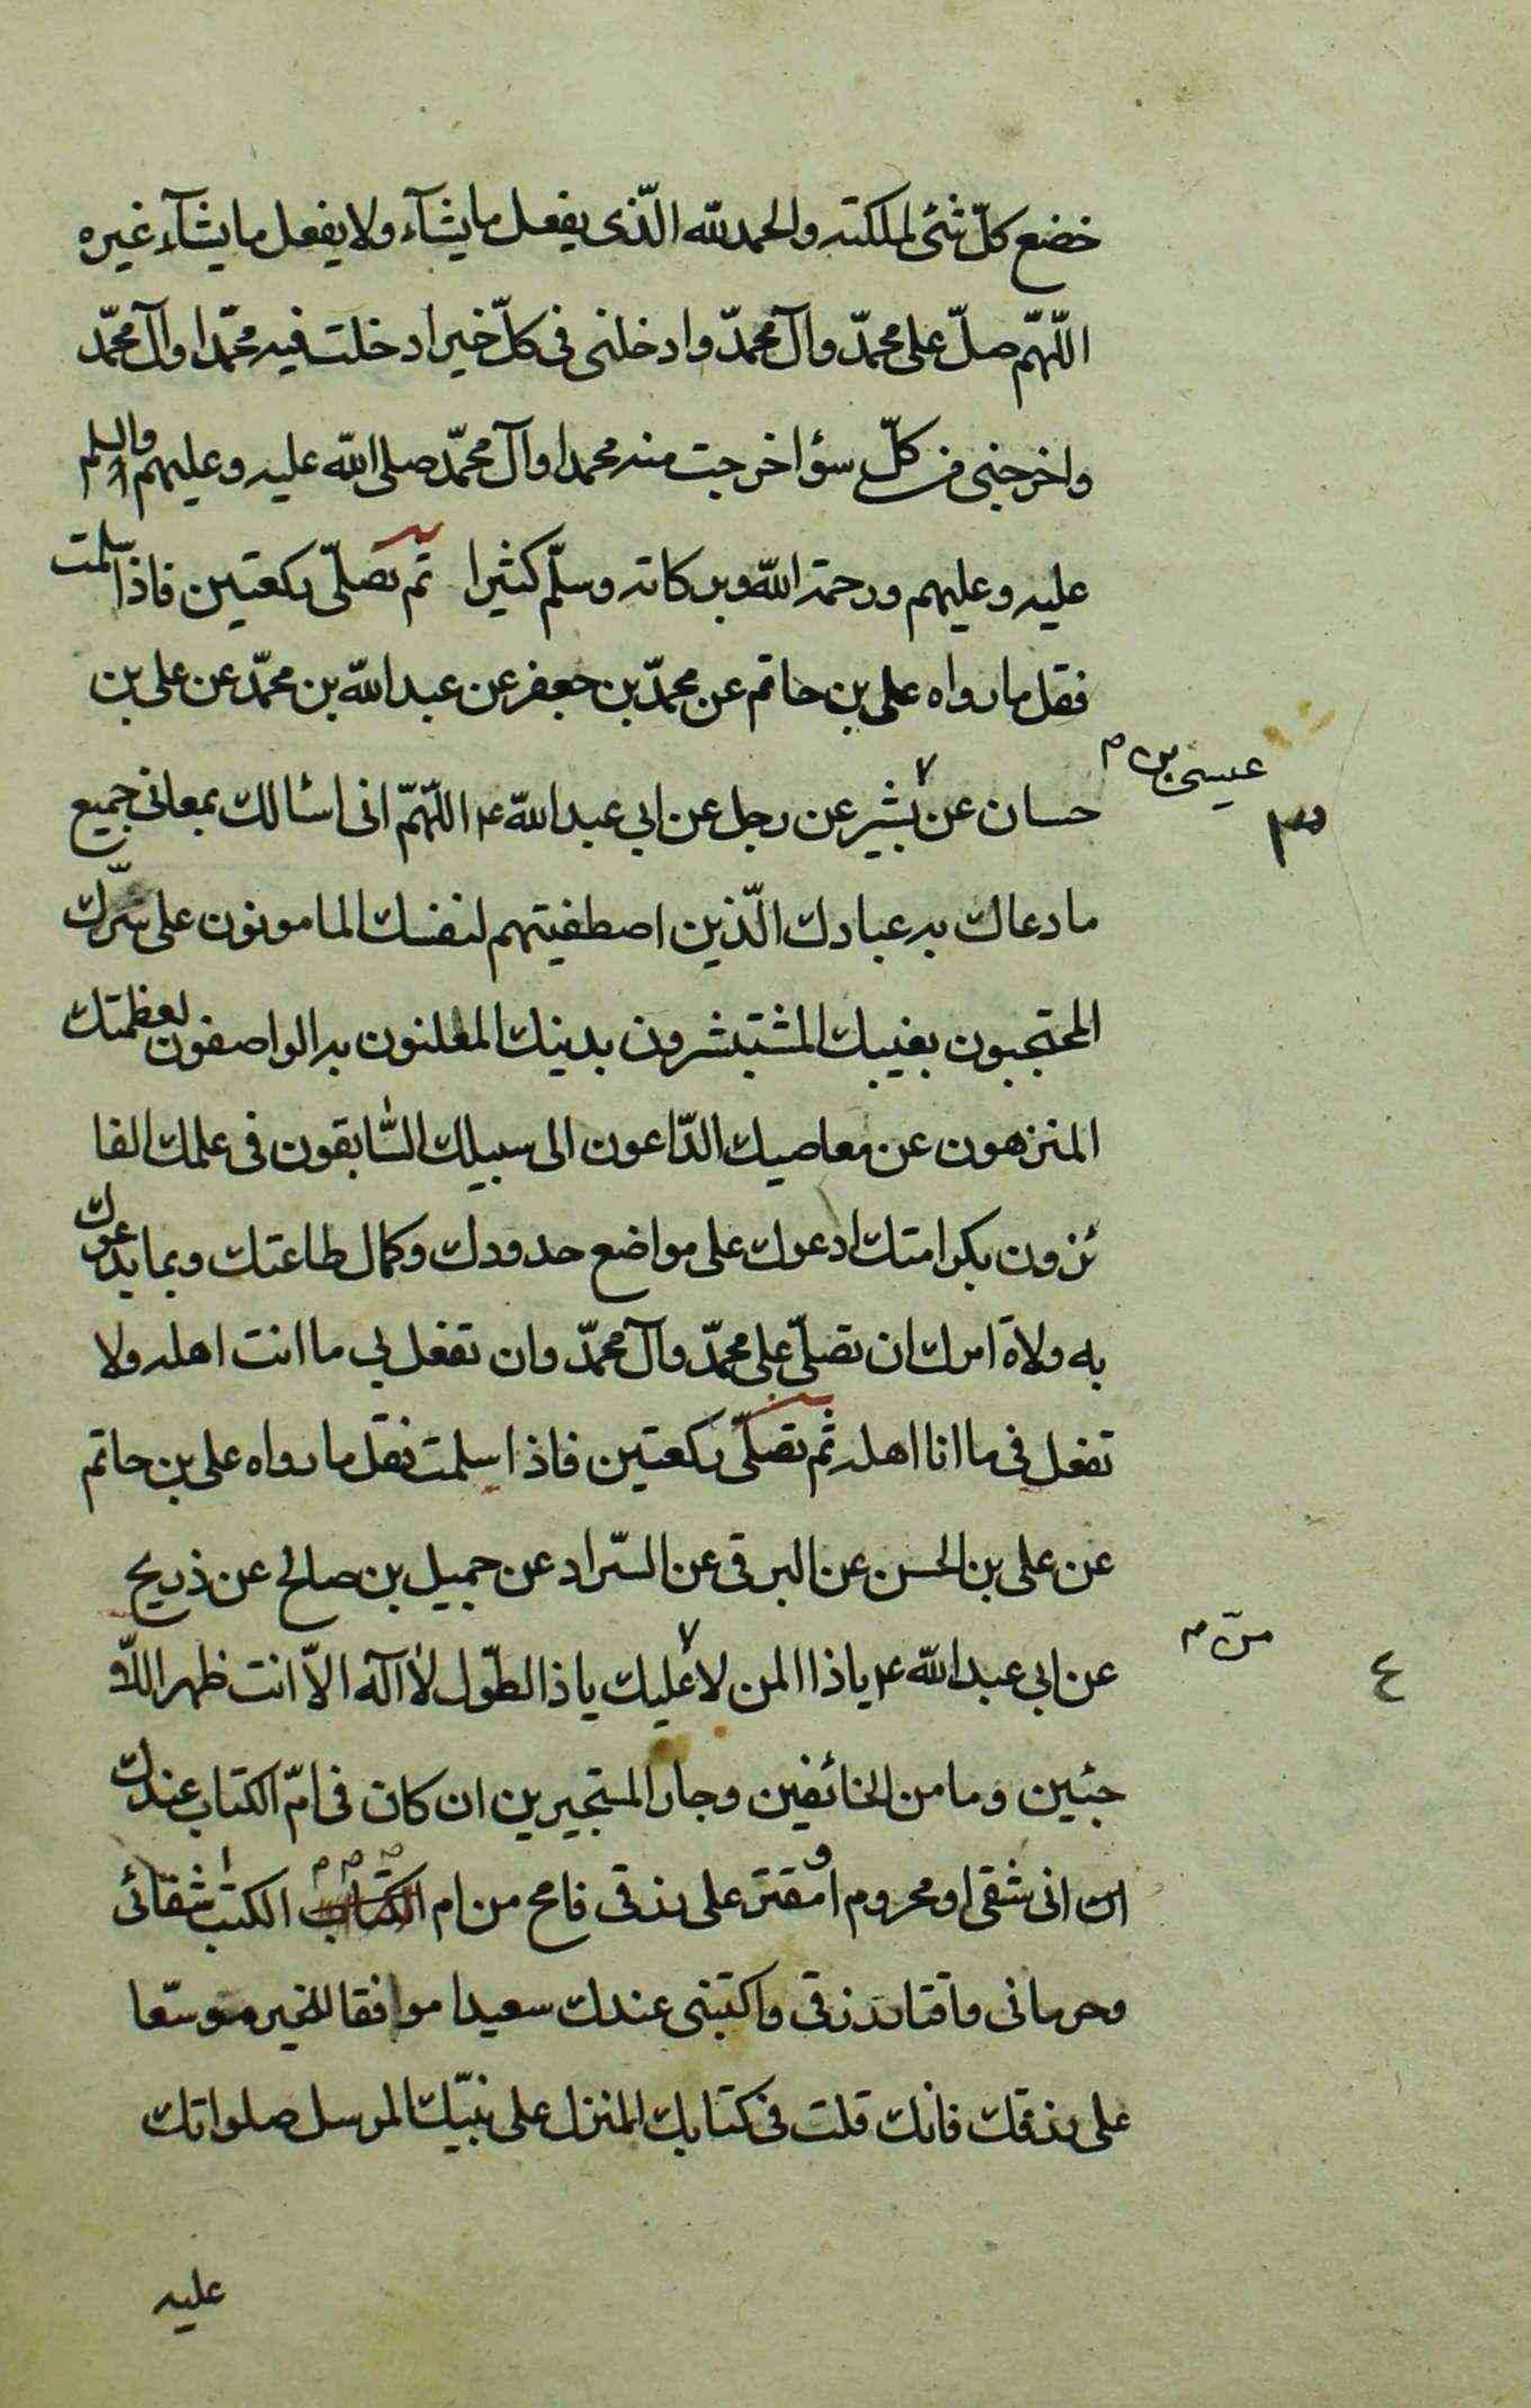 خضع كلّ شئ لملكته والحمد لله الّذى يفعل ما يشآء ولا يفعل ما يشآء غيره
اللّهمّ صلّ على محمّد وآل محمّد وادخلنى فى كلّ خير ادخلت فيه محمّدا وآل محمّد
واخرجنى من كلّ سوٴ اخرجت منه محمدا وآل محمّد صلى الله عليه وعليهم والسلم
عليه وعليهم ورحمة الله وبركاته وسلّم كثيرا ثم تصلّى ركعتين فاذا سلمت
فقل ما رواه على بن حاتم عن محمّد بن جعفر عن عبد الله بن محمّد عن على بن
عيسى بن م
حسان عن بشير عن رجل عن ابي عبد الله ع اللّهمّ انى اسٔالك بمعانى جميع
٣
ما دعاك به عبادك الّذين اصطفيتهم لنفسك المامونون على سّرك
المحتجبون بغيبك المشتبشرون بدينك المعلنون به الواصفون لعظمتك
المنزهون عن معاصيك الدّاعون الى سبيلك السّابقون فى علمك الفا
ئزون بكرامتك ادعوك على مواضع حدودك وكمال طاعتك وبما يدعوك
به ولاة امرك ان تصلّى على محمّد وآل محمّد وان تفعل بي ما انت اهله ولا
تفعل فى ما انا اهله ثم تصلّى ركعتين فاذا سلمت فقل ما رواه على بن حاتم
عن على بن الحسن عن البرقى عن السّراد عن جميل بن صالح عن ذريح
منّ م
عن ابي عبد الله ع يا ذا المن لا عليك يا ذا الطّول لا اله الاّ انت ظهر اللاّ
٤
جئين ومامن الخائفين وجار المستجيرين ان كان فى امّ الكتاب عندك
ان انى شقى او محروم او مقتر على رزقى فامح من ام الكتاب الكتب شقائى
وحرمانى واقتار رزقى واكتبنى عندك سعيدا موافقا للخير موسّعا
على رزقك فانك قلت فى كتابك المنزل على نبيّك المرسل صلواتك
عليه